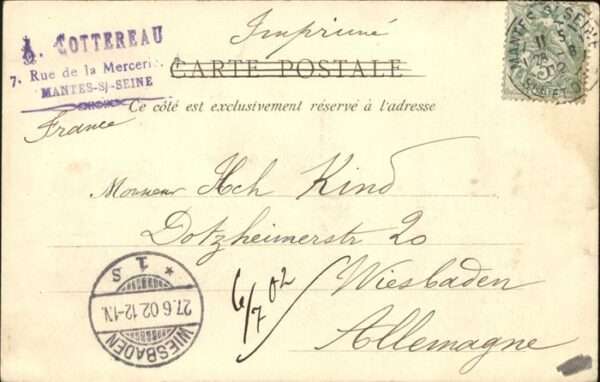 Imprimé
A. COTTEREAU
7. Rue de la Mercerie.
MANTES-S/-SEINE
CARTE POSTALE
Ce côté est exclusivement réservé à l'adresse
France
MANTES-S-SEINE
Monsieur Hch Kind
Dotzheimerstr 20
Wiesbaden
Allemagne
6/7 02
1 S
27.6.02.12-1N.
WIESBADEN